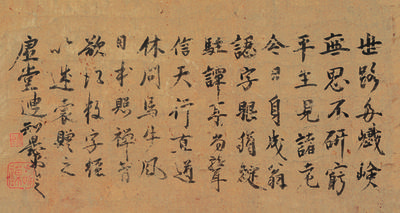 世路多巇嶮
無思不研窮
平生見諸老
今日自成翁
認字眼猶綻
駐譚耳尚聾
信天行直道
休問馬牛風
日本照禪者
欲得数字徑
以述褱贈之
虚堂叟知愚書